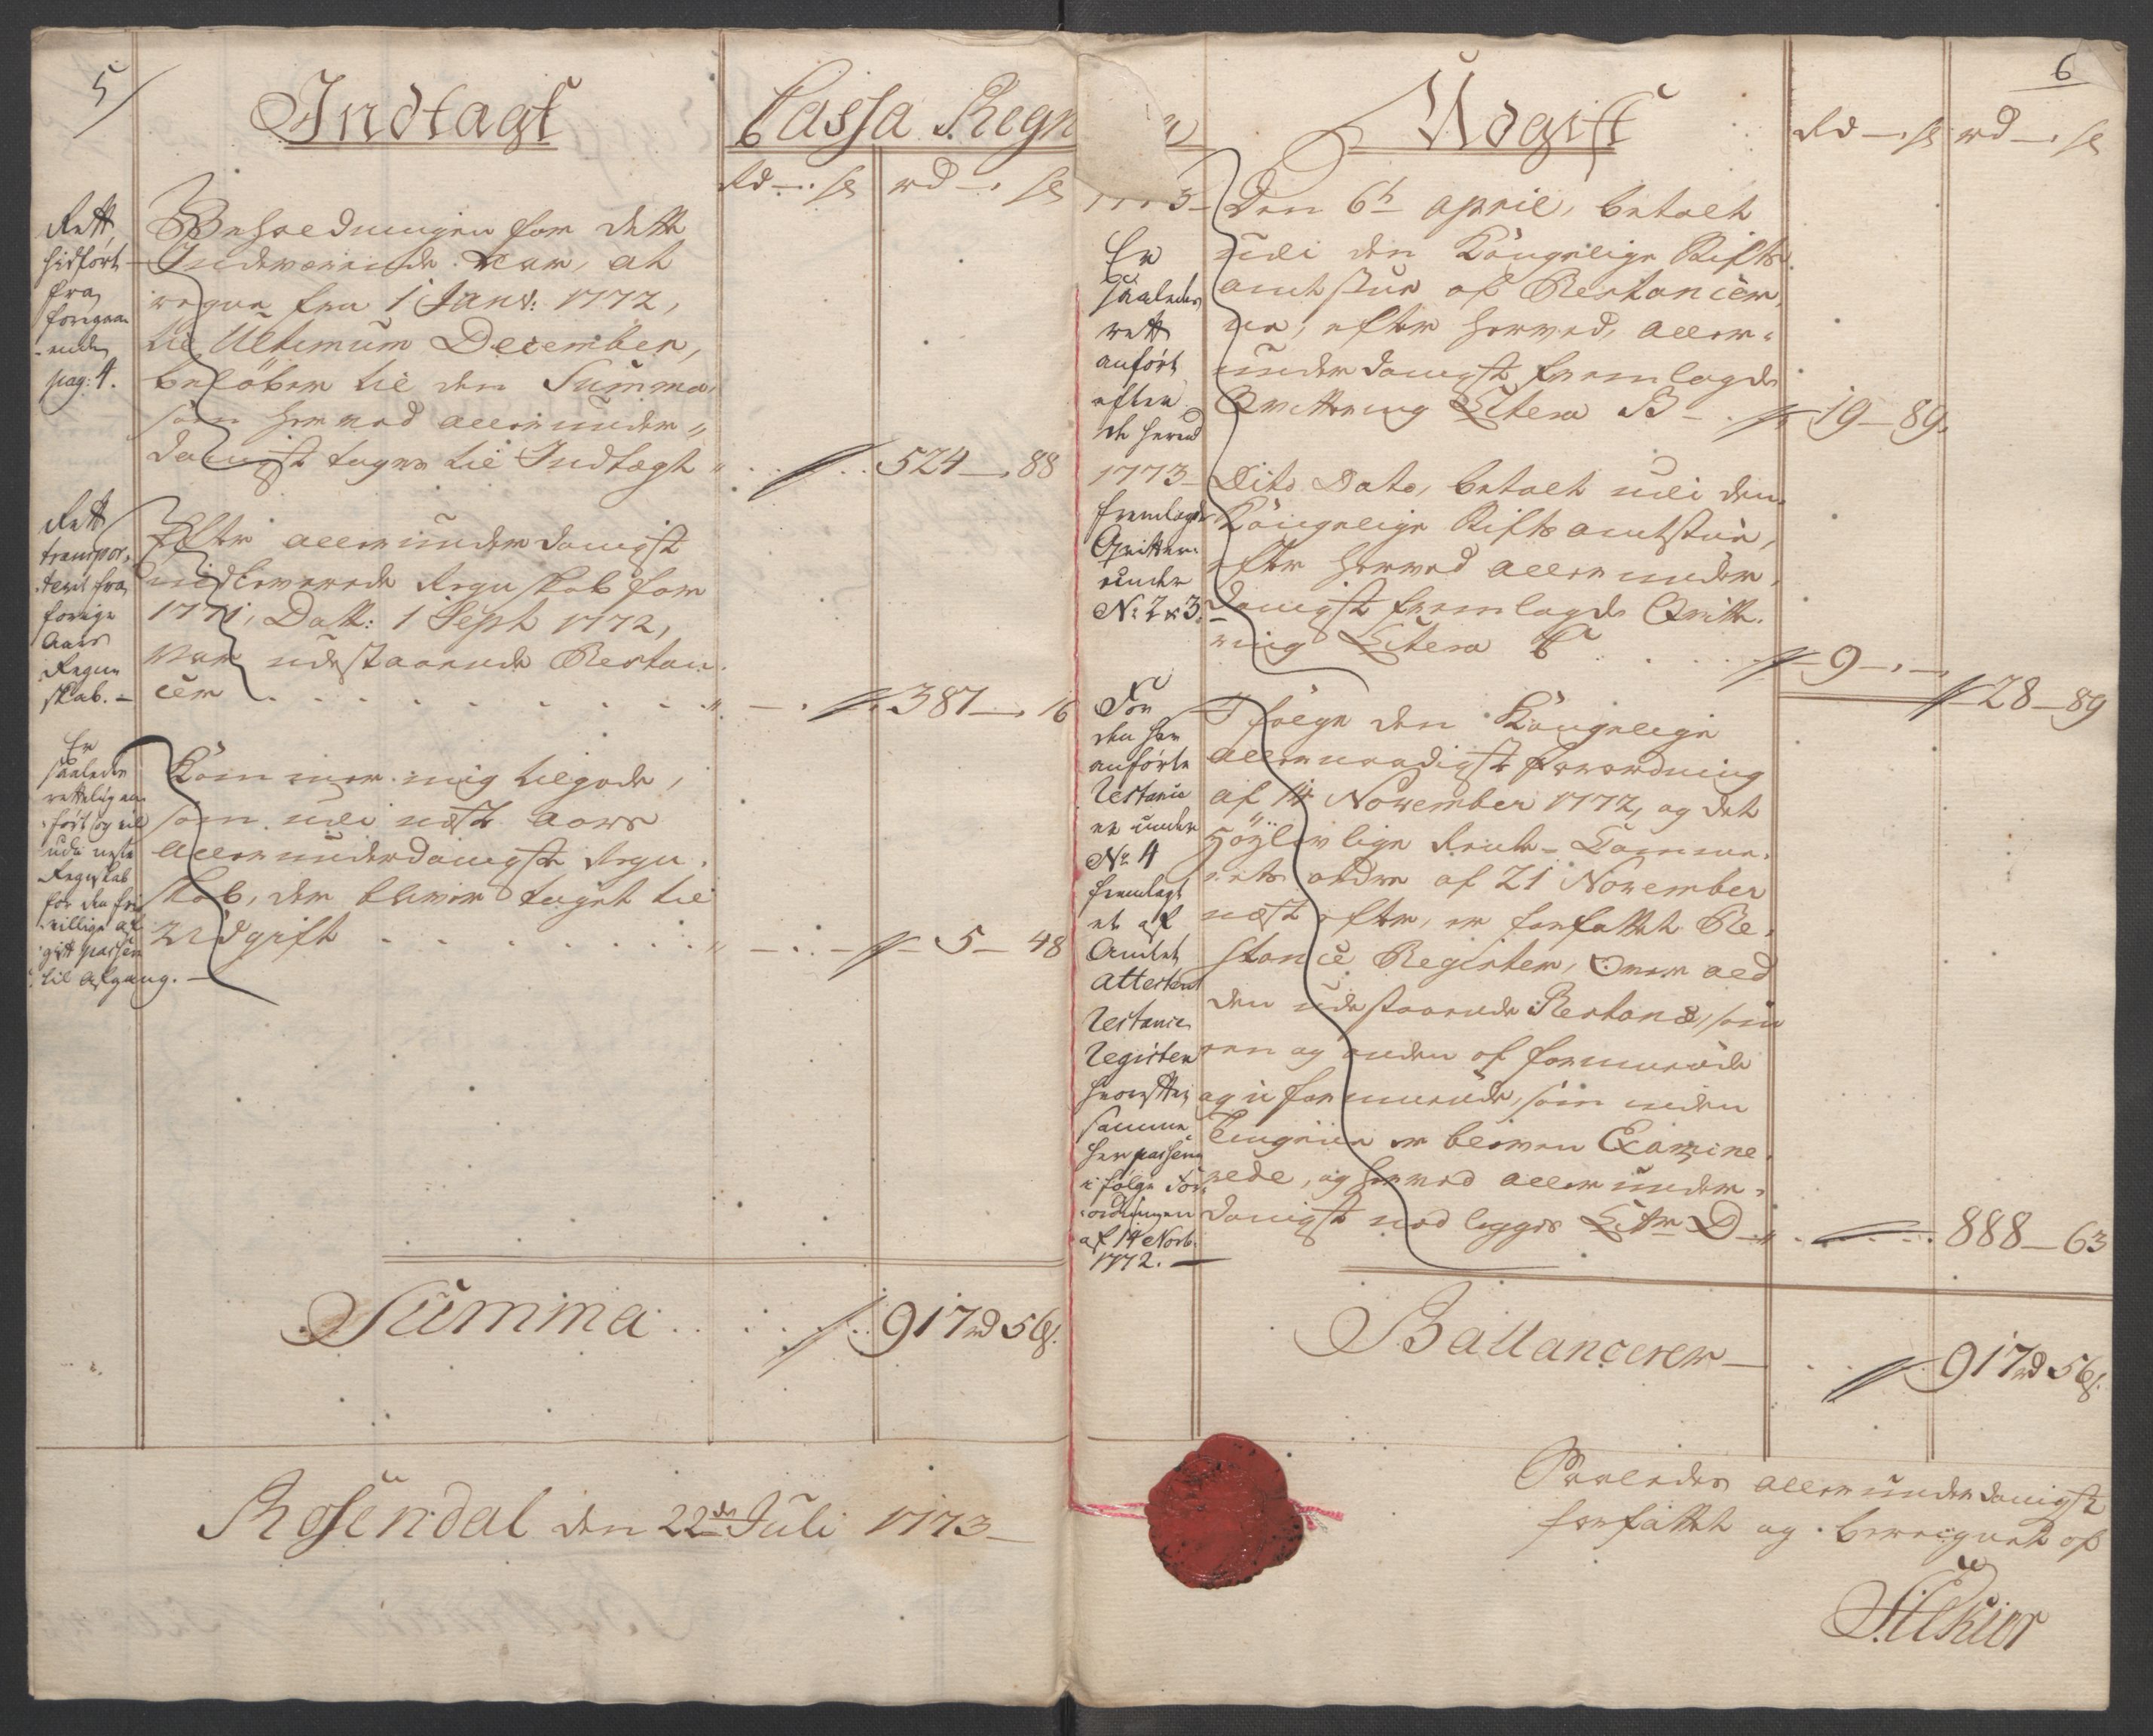 5/
Indtagt
Cassa Regn
Rd — . ſs rd — . ſs
Rett
hidført
fra
foregaa
ende
pag: 4.
Behoedningen for dette
Indeværende Aar, at
regne fra 1 Janv: 1772,
til Ultimum December,
beløber til den Summa
som herved allerunder„
danigst tages til Indtægt „ . . . 524 — . 88
Rett
transpor„
terit fra
forrige
Aars
Regn
skab. —
Efter allerunderdanigst
indleverede Regnskab for
1771, Datt: 1 Sept 1772,
var udestaaende Restan
cer . . . . . . . „ — . 387 — . 16
Er
saaledes
rettelig an
ført og vil
udi neste
Regnskab
for den fri
villige af
gift passere
til Afgang. —
Kommer mig tilgode,
som udi næst Aars
allerunderdanigste Regn„
skab, der bliver taget til
Udgift . . . . . . „ — . — 5 — 48
Summa . . . . 917 rd 56 ſs.
Rosendal den 22de Juli 1773 —
6
Udgift
Rd — . ſs rd — . ſs
1773 —
Er
saaledes
rett
anført
efter
de herved
1773 —
fremlagde
Qvitter
under
No: 2 & 3.
Den 6te April, betalt
udi den Kongelige Stifts
amtstue af Restancer„
ne, efter herved, aller„
underdanigst fremlagde
Qvittering Litera B — . 19 — 89.
Dito Dato, betalt udi den
Kongelige Stiftsamtstue,
efter herved allerunder„
danigst fremlagde Qvitte„
ring Litera C . . . . 9 — . —
28 — 89
For
den her
anførte
Restance
er under
No: 4
fremlagt
et af
Amtet
Attesteret
Restance
Register
hvorefter
samme
her passerer
i følge For
ordningen
af 14 Novb.
1772. —
I følge den Kongelige
allernaadigste Forordning
af 14 November 1772, og det
Høylovlige Rente-Camme„
rets ordre af 21 November
næst efter, er forfattet Re„
stance Register, over all
den udestaaende Restance, som
een og anden af formuende
og u formuende, som inden
Tingene er bleven Examine„
rede, og herved allerunder„
danigst ved legges Litr: D — „ . . . 888 — 63
Ballancerer — . . 917 rd 56 ſs.
Saaledes allerunderdanigst
forfattet og beregnet af